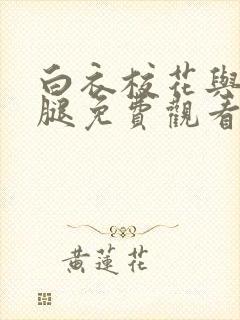 白衣校花與
腿免費觀看
黃蓮花